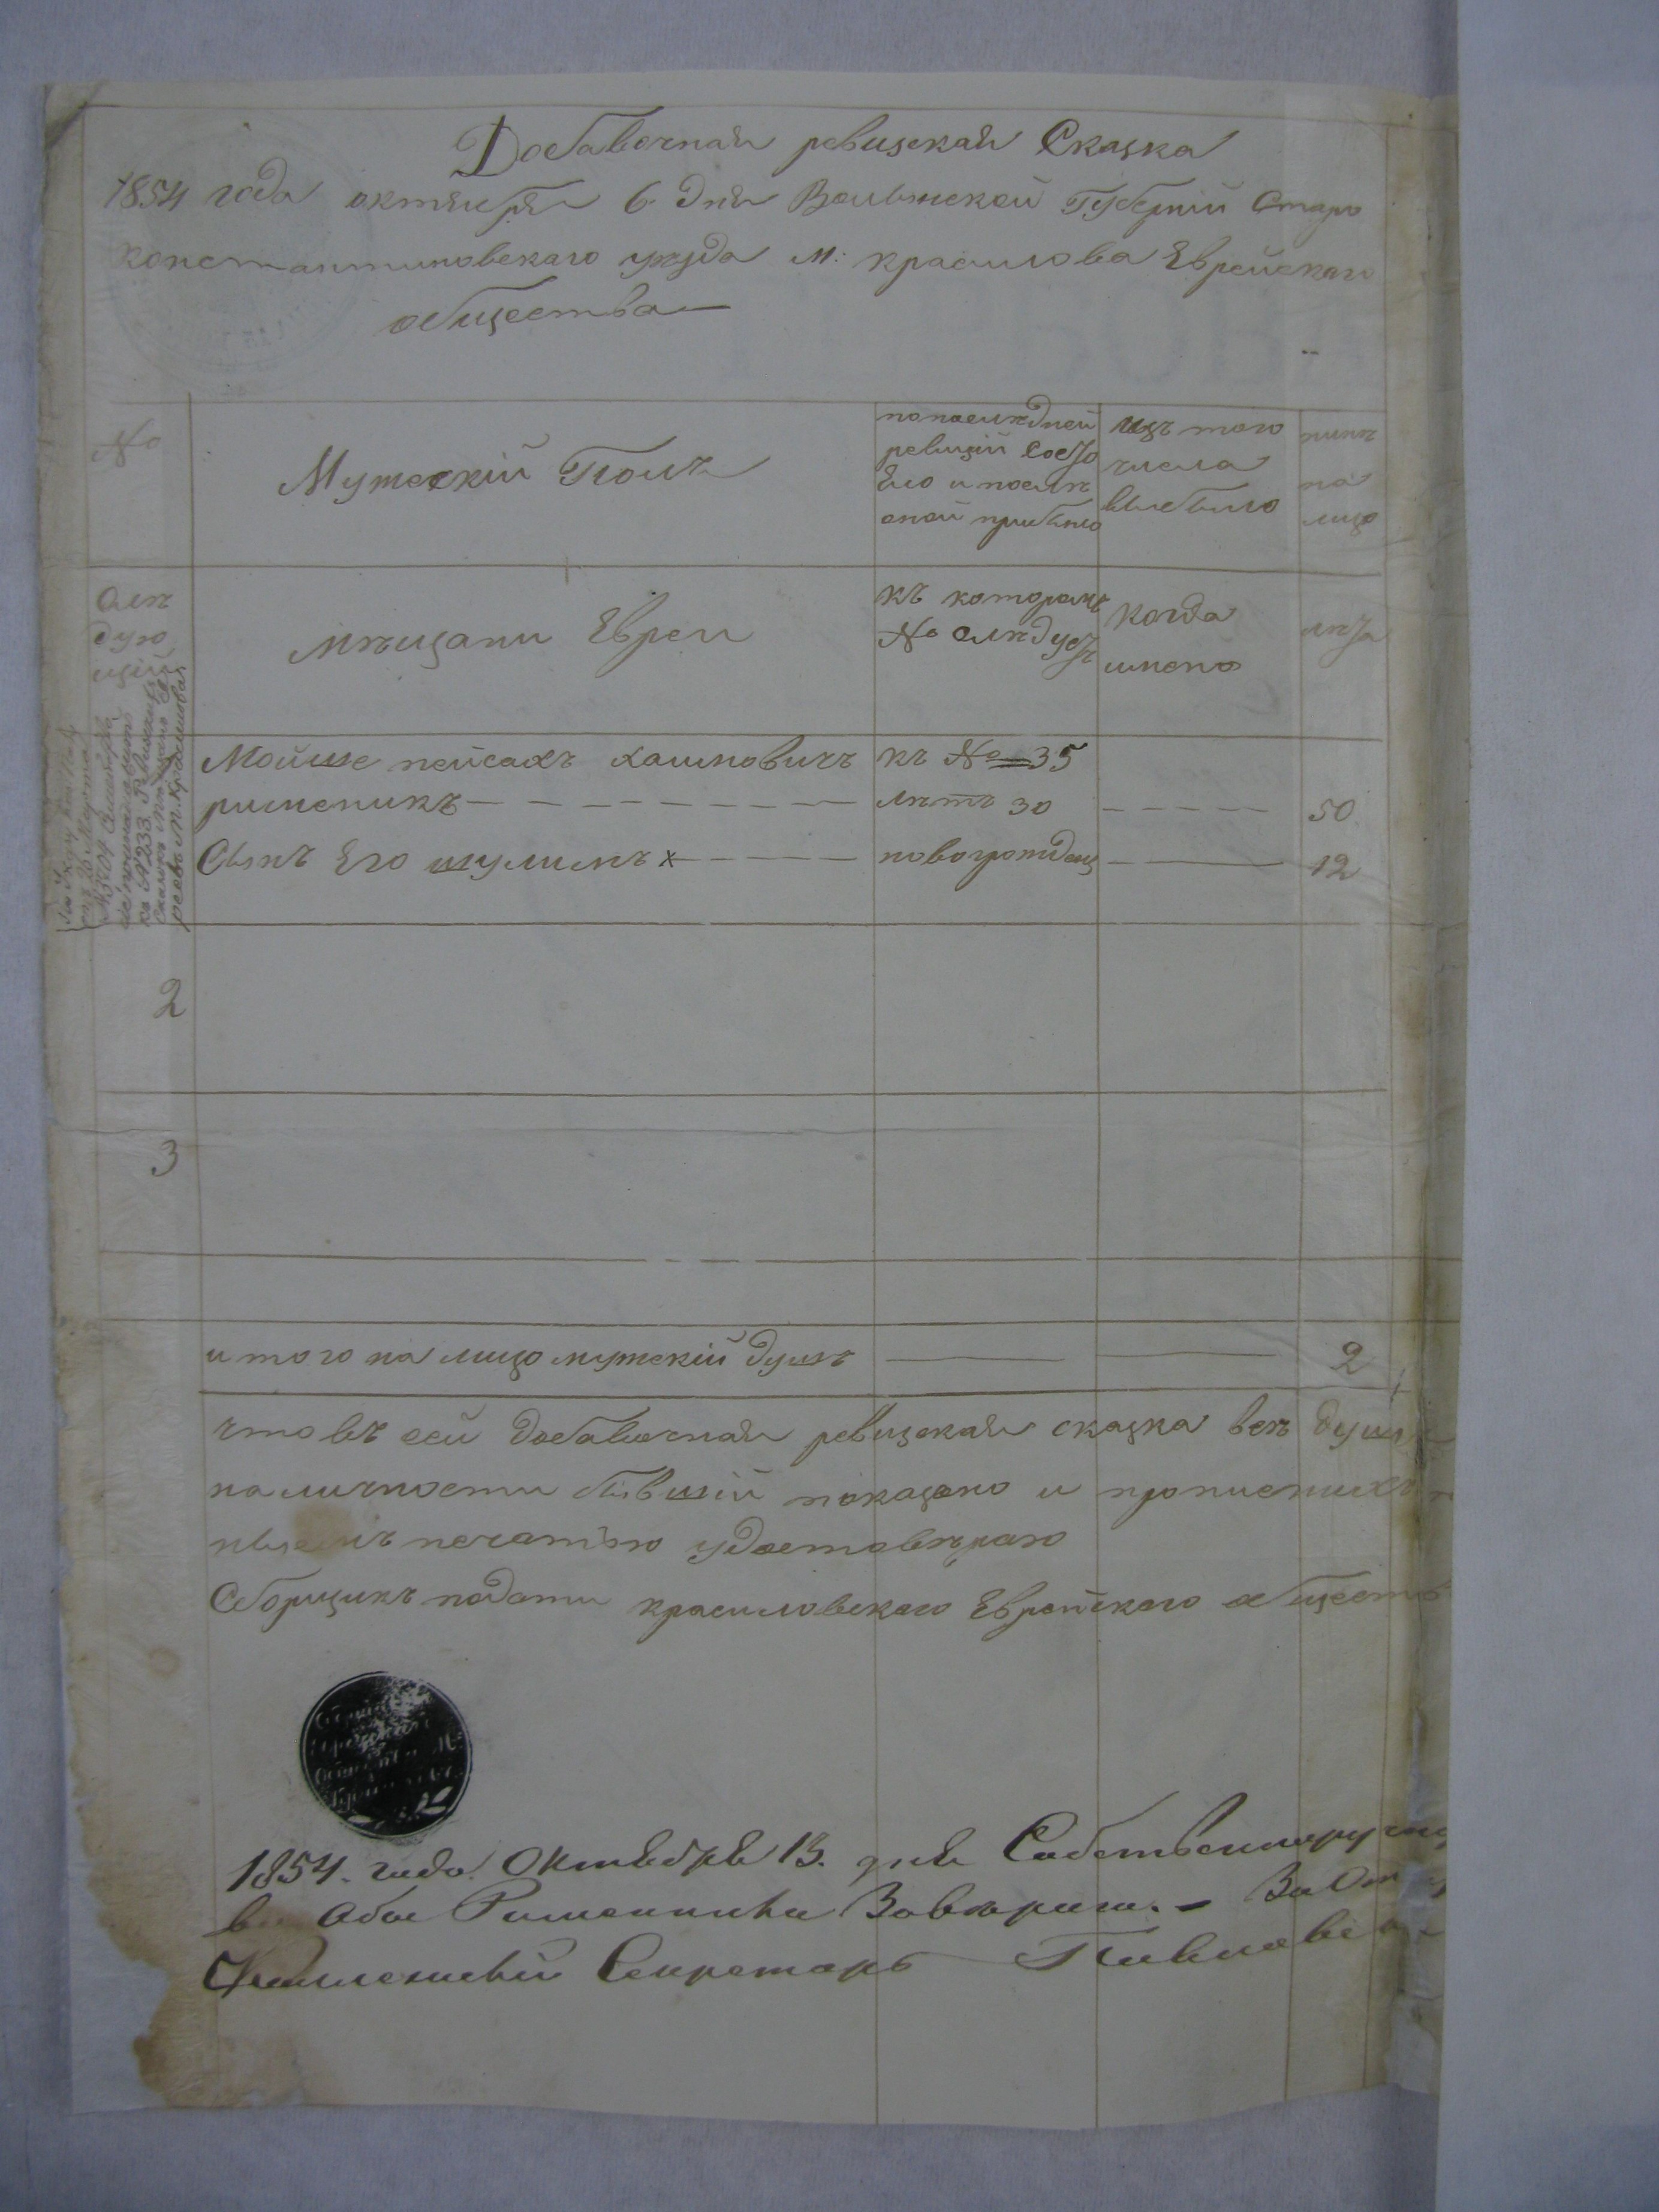 Добавочная ревизская Сказка
1854 года октября 6 дня Волынской Губерніи Старо
константиновскаго уезда м: красилова Еврейскаго
общества
№
Мужескій Полъ
по последней
ревизіи состо
яло и после
оной прибыло
изъ того
числа
выбыло
ныне
на
лицо
Сле
дую
щій
мещани Евреи
къ которамъ
№ следуетъ
когда
имено
лета
Мойше пейсахъ хаимовичъ
къ № 35
рименикъ
летъ 30
50
Сынъ Его шулимъ х
новорожденъ
12
2
3
итого на лицо мужскій душъ
2
что въ сей добавочная ревизская сказка все души
наличности бывшій показано и прописнихъ
печатью удостоверяю
Сборщикъ подати красиловскаго Еврейскаго общест
1854. года Октября 13. дня Собственноручно
Рименика Заверяю. – За
Секретарь